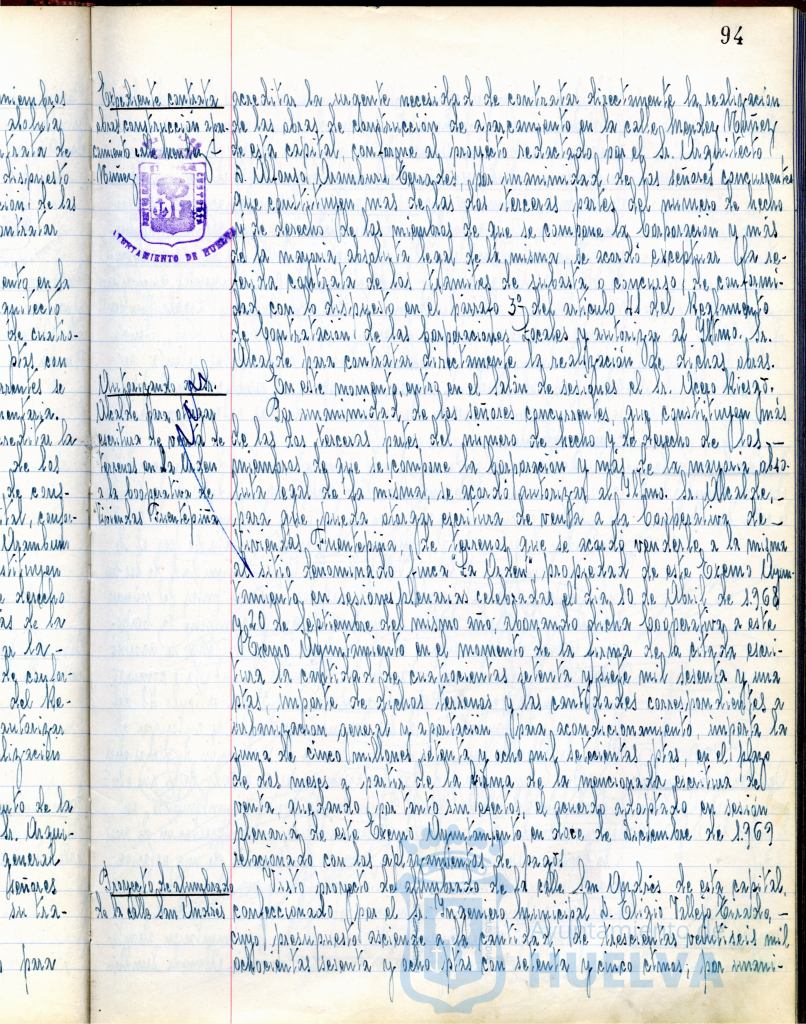 94
miembros
absoluta
trata de
dispuesto
cion de las
contratar
ento, en la
quitecto
de cuatro-
ptas con
rrentes se
mentaria.
acreditar la
de los
de cons-
tal, confor-
Aramburu
stituyen
e derecho
as de la
ar la-
de confor-
del Re-
autorizar
lización
ento de la
Sr. Arqui-
general
señores
su tra-
para
Expediente contrata
obras construcción apar-
camiento calle Mendez
Núñez
AYUNTAMIENTO DE HUELVA
Autorizando al Sr.
Alcalde para otorgar
escritura de venta de
terrenos en La Orden
a la Cooperativa de
Viviendas Fuentepiña
Proyecto de alumbrado
de la calle San Andrés
acreditar la urgente necesidad de contratar directamente la realización
de las obras de construcción de aparcamiento en la calle Mendez Núñez
de esta capital, conforme al proyecto redactado por el Sr. Arquitecto
D. Alfonso Aramburu Terrades, por unanimidad de los señores concurrentes
que constituyen mas de las dos terceras partes del numero de hecho
y de derecho de los miembros de que se compone la Corporación y más
de la mayoria absoluta legal de la misma, se acordó exceptuar la re-
ferida contrata de los trámites de subasta o concurso, de conformi-
dad con lo dispuesto en el parrafo 3º del articulo 41 del Reglamento
de Contratación de las Corporaciones Locales y autorizar al Iltmo. Sr.
Alcalde para contratar directamente la realización de dichas obras.
En este momento, entra en el salón de sesiones el Sr. Ucero Riesgo.
Por unanimidad de los señores concurrentes, que constituyen más
de las dos terceras partes del numero de hecho y de derecho de los-
miembros de que se compone la Corporación y más de la mayoria abso-
luta legal de la misma, se acordó autorizar al Iltmo. Sr. Alcalde,
para que pueda otorgar escritura de venta a la Cooperativa de-
Viviendas Fuentepiña, de terrenos que se acordó venderle a la misma
al sitio denominado "Finca La Orden", propiedad de este Excmo Ayun-
tamiento, en sesiones plenarias celebradas el dia 10 de Abril de 1968
y 20 de Septiembre del mismo año, abonando dicha Cooperativa a este
Excmo Ayuntamiento en el momento de la firma de la citada escri-
tura la cantidad de cuatrocientas setenta y siete mil sesenta y una
ptas, importe de dichos terrenos y las cantidades correspondientes a
urbanización general y aportación para acondicionamiento, importa la
suma de cinco millones setenta y ocho mil setecientas ptas, en el plazo
de dos meses a partir de la firma de la mencionada escritura de
venta, quedando por tanto sin efectos, el acuerdo adoptado en sesión
plenaria de este Excmo Ayuntamiento en doce de diciembre de 1.969
relacionado con los aplazamientos de pago.
Visto proyecto de alumbrado de la calle San Andrés de esta capital,
confeccionado por el Sr. Ingeniero Municipal D. Eligio Vallejo Errados,-
cuyo presupuesto asciende a la cantidad de trescientas veintiseis mil
ochocientas sesenta y ocho ptas con setenta y cinco ctmos; por unani-
Ayuntamiento de
HUELVA